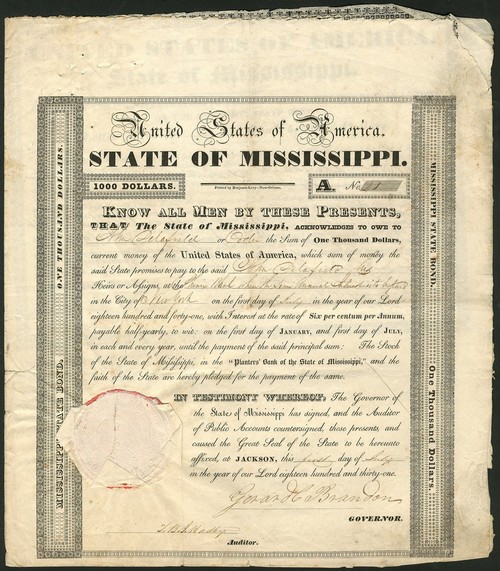 United States of America.
STATE OF MISSISSIPPI.
1000 DOLLARS.
Printed by Benjamin Levy, New-Orleans.
A. No. 1
KNOW ALL MEN BY THESE PRESENTS,
THAT The State of Mississippi, ACKNOWLEDGES TO OWE TO
John Delafield or Order the Sum of One Thousand Dollars,
current money of the United States of America, which sum of money the
said State promises to pay to the said John Delafield his
Heirs or Assigns, at the
in the City of New York on the first day of July in the year of our Lord
eighteen hundred and forty-one, with Interest at the rate of Six per centum per Annum,
payable half-yearly, to wit: on the first day of JANUARY, and first day of JULY,
in each and every year, until the payment of the said principal sum: The Stock
of the State of Mississippi, in the "Planters' Bank of the State of Mississippi," and the
faith of the State are hereby pledged for the payment of the same.
IN TESTIMONY WHEREOF, The Governor of
the State of Mississippi has signed, and the Auditor
of Public Accounts countersigned, these presents, and
caused the Great Seal of the State to be hereunto
affixed, at JACKSON, this first day of July
in the year of our Lord eighteen hundred and thirty-one.
Gerard C. Brandon
GOVERNOR.
Auditor.
ONE THOUSAND DOLLARS.
MISSISSIPPI STATE BOND.
MISSISSIPPI STATE BOND.
One Thousand Dollars.